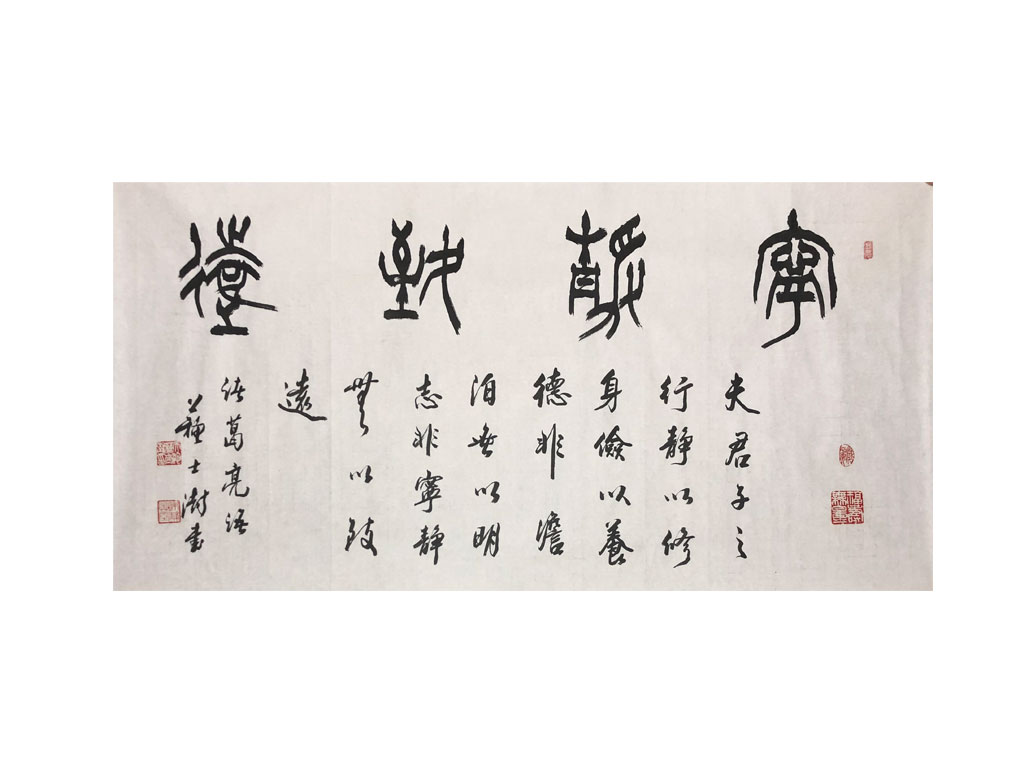 寧靜致遠
夫君子之
行靜以修
身儉以養
德非澹
泊無以明
志非寧靜
無以致
遠
諸葛亮語
蘇士澍書